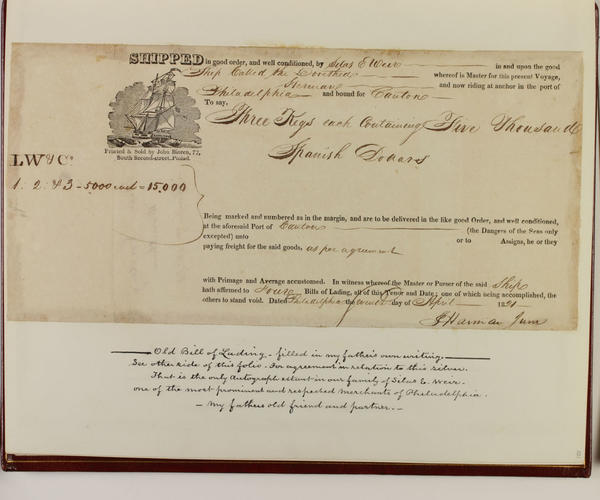 SHIPPED in good order, and well conditioned, by Silas E Weir in and upon the good
Ship Called the whereof is Master for this present Voyage,
Herman and now riding at anchor in the port of
Philadelphia and bound for Canton
To say,
Three Kegs each Containing Five Thousand
Spanish Dollars
Printed & Sold by John Bioren, 77,
South Second-street, Philad.
L W & Co
1. 2. & 3 - 5000 each = 15,000
Being marked and numbered as in the margin, and are to be delivered in the like good Order, and well conditioned,
at the aforesaid Port of Canton (the Dangers of the Seas only
excepted) unto or to Assigns, he or they
paying freight for the said goods, as per agreement
with Primage and Average accustomed. In witness whereof the Master or Purser of the said Ship
hath affirmed to Four Bills of Lading, all of this Tenor and Date; one of which being accomplished, the
others to stand void. Dated Philadelphia the day of April 1821
Harman Junr
Old Bill of Lading - filled in my father's own writing.
See other side of this folio. For agreement in relation to this silver.
That is the only Autograph extant in our family of Silas E. Weir.
one of the most prominent and respected merchants of Philadelphia.
- my fathers old friend and partner. -